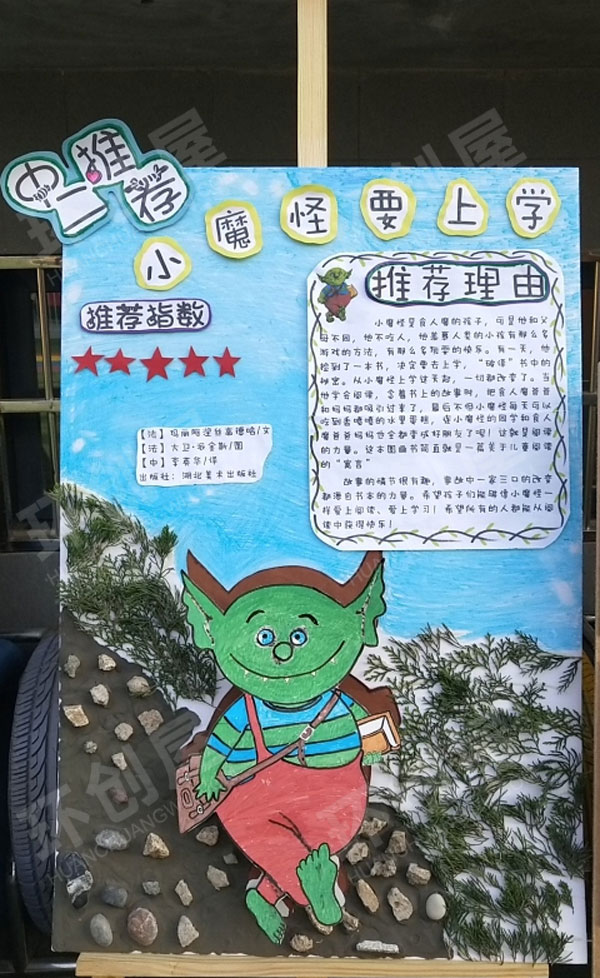 中一推荐
小魔怪要上学
推荐指数
推荐理由
小魔怪是食人魔的孩子，可是他和父
母不同，他不吃人，他羡慕人类的小孩有那么多
游戏的方法，有那么多玩耍的快乐。有一天，他
捡到了一本书，决定要去上学，“破译”书中的
秘密。从小魔怪上学这天起，一切都改变了。当
他学会阅读，念着书上的故事时，把食人魔爸爸
和妈妈都吸引过来了，最后不但小魔怪每天可以
吃到香喷喷的水果蛋糕，连小魔怪的同学和食人
魔爸爸妈妈也全都变成好朋友了呢！这就是阅读
的力量。这本图画书简直就是一篇关于儿童阅读
的“寓言”
故事的情节很有趣，事故中一家三口的改变
都源自书本的力量。希望孩子们能像小魔怪一
样爱上阅读、爱上学习！希望所有的人都能从阅
读中获得快乐！
【法】玛丽阿涅丝高德哈/文
【法】大卫·派金斯/图
【中】李英华/译
出版社：湖北美术出版社
环创屋